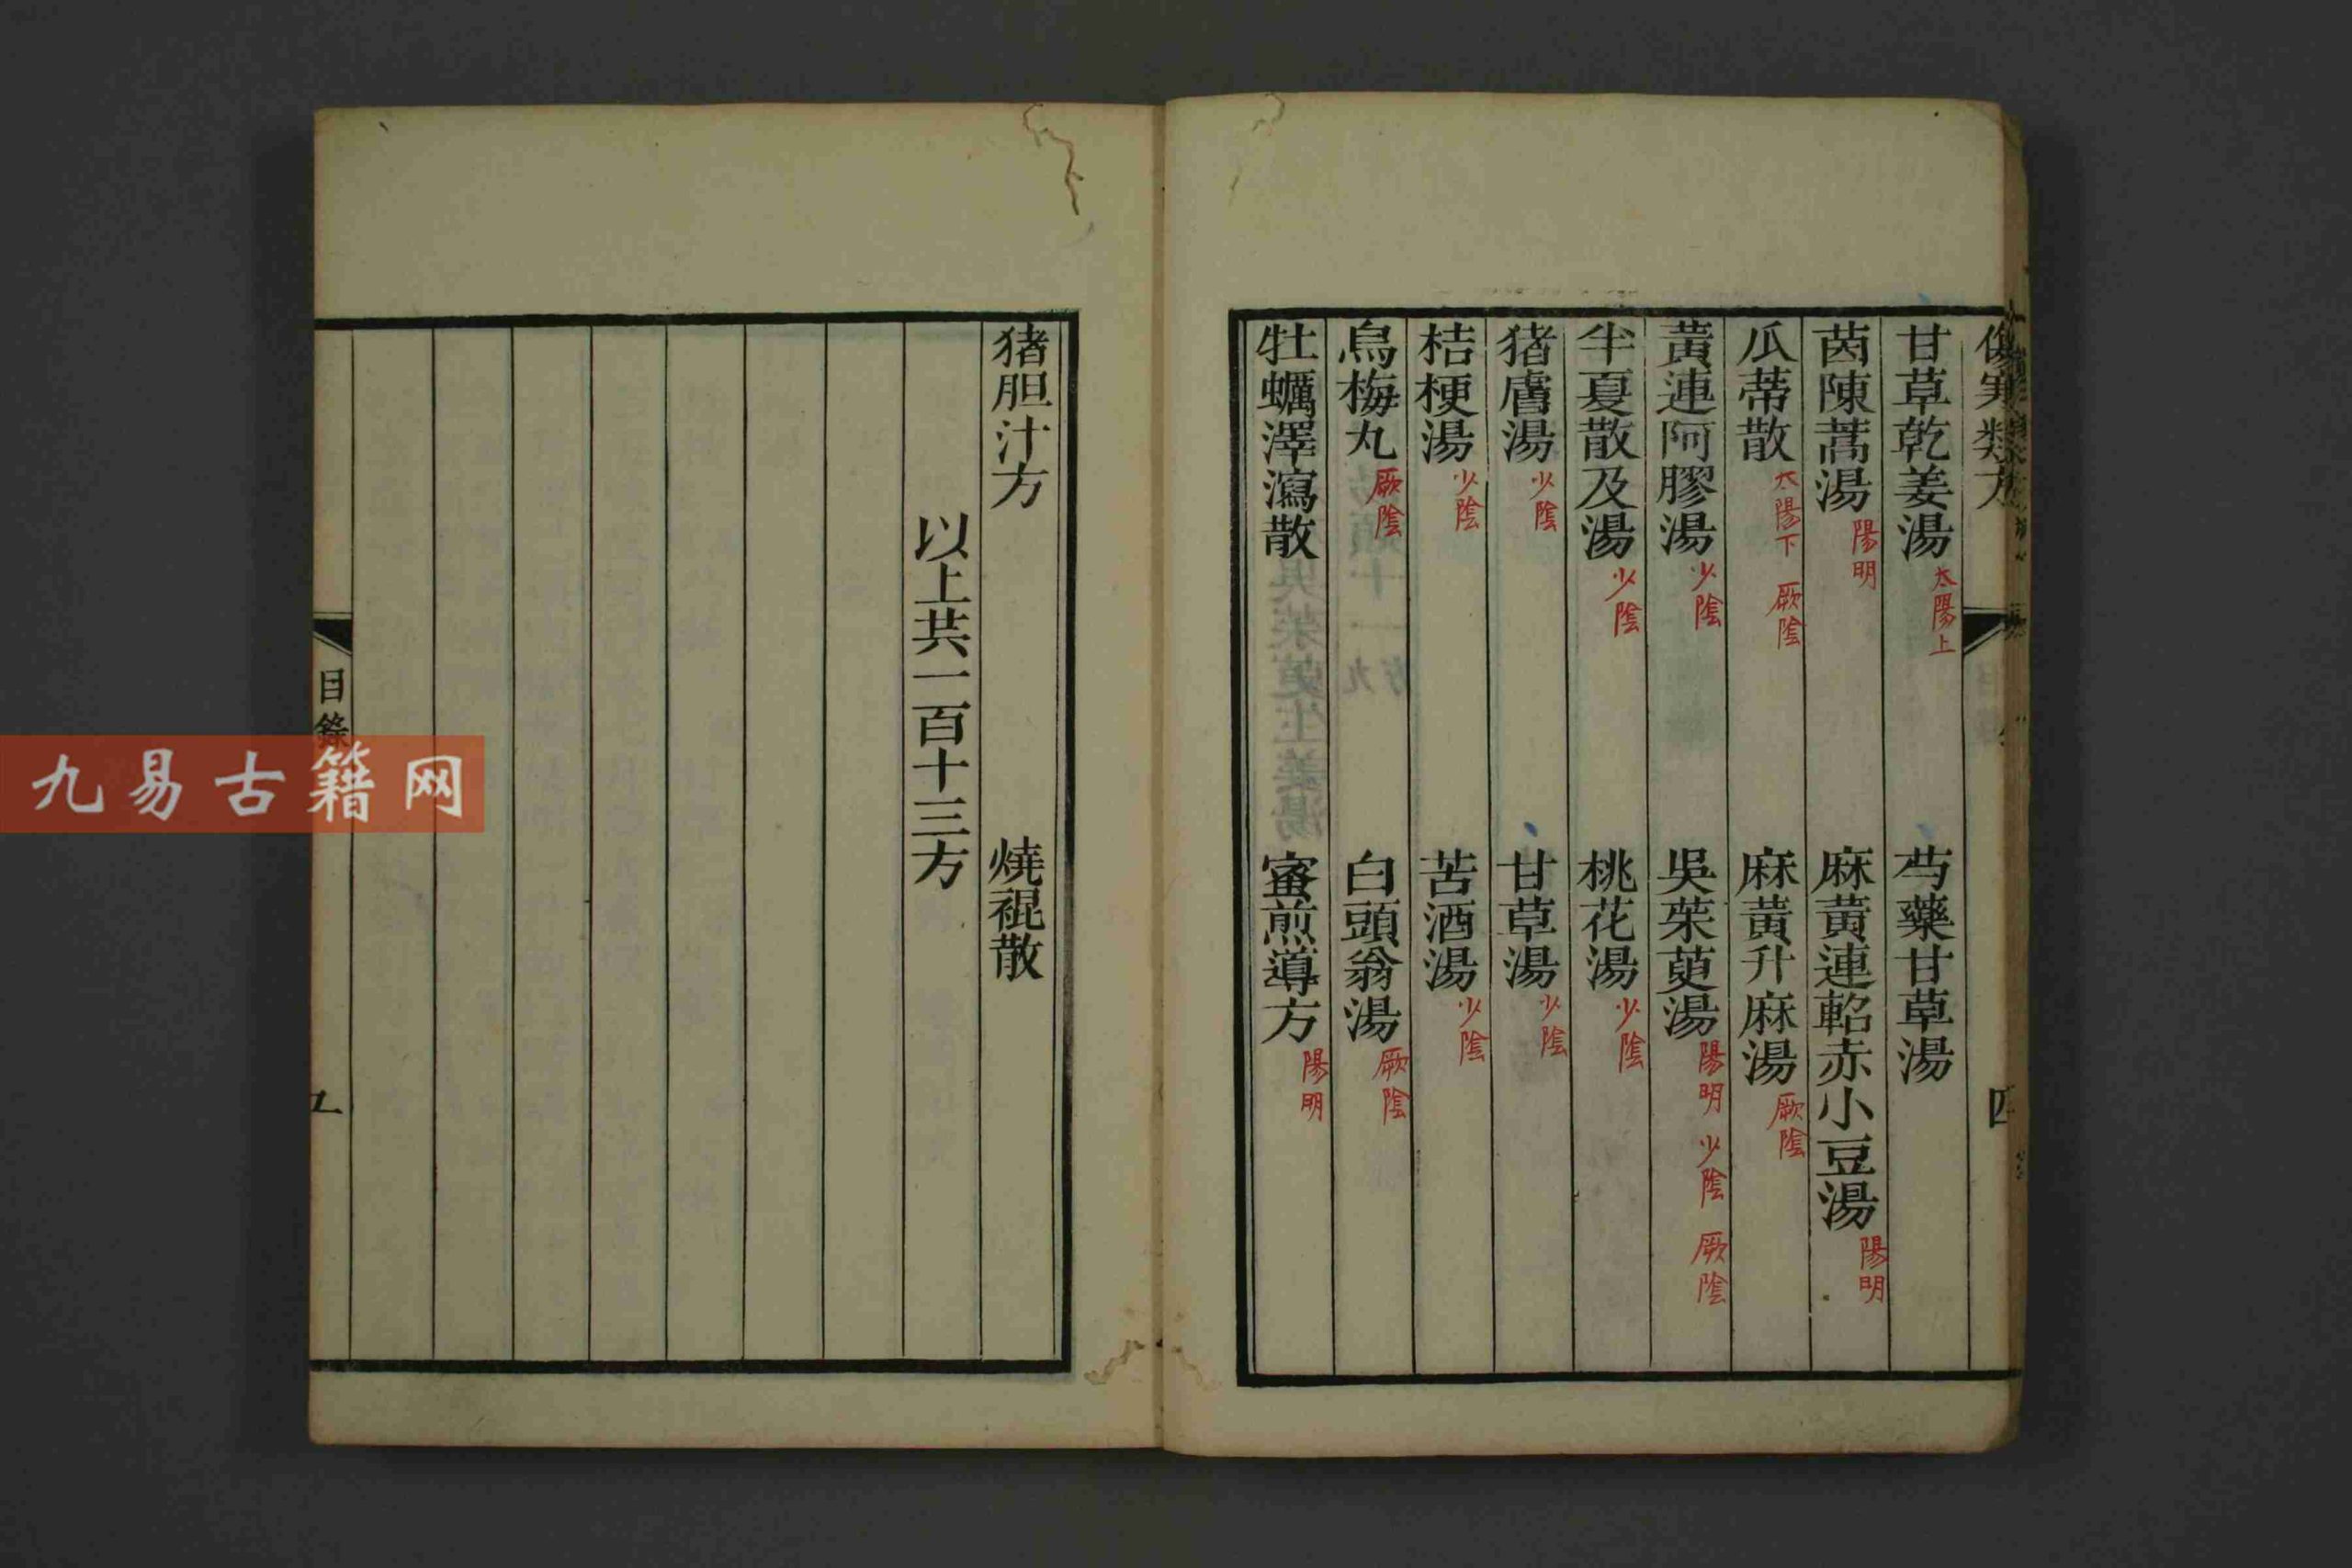 傷寒類方
四
甘草乾姜湯 太陽上 芍藥甘草湯
茵陳蒿湯 陽明 麻黃連軺赤小豆湯 陽明
瓜蒂散 太陽下 厥陰 麻黃升麻湯 厥陰
黃連阿膠湯 少陰 吳茱萸湯 陽明 少陰 厥陰
半夏散及湯 少陰 桃花湯 少陰
猪膚湯 少陰 甘草湯 少陰
桔梗湯 少陰 苦酒湯 少陰
烏梅丸 厥陰 白頭翁湯 厥陰
牡蠣澤瀉散 蜜煎導方 陽明
猪胆汁方 燒裩散
以上共一百十三方
目錄
九易古籍网